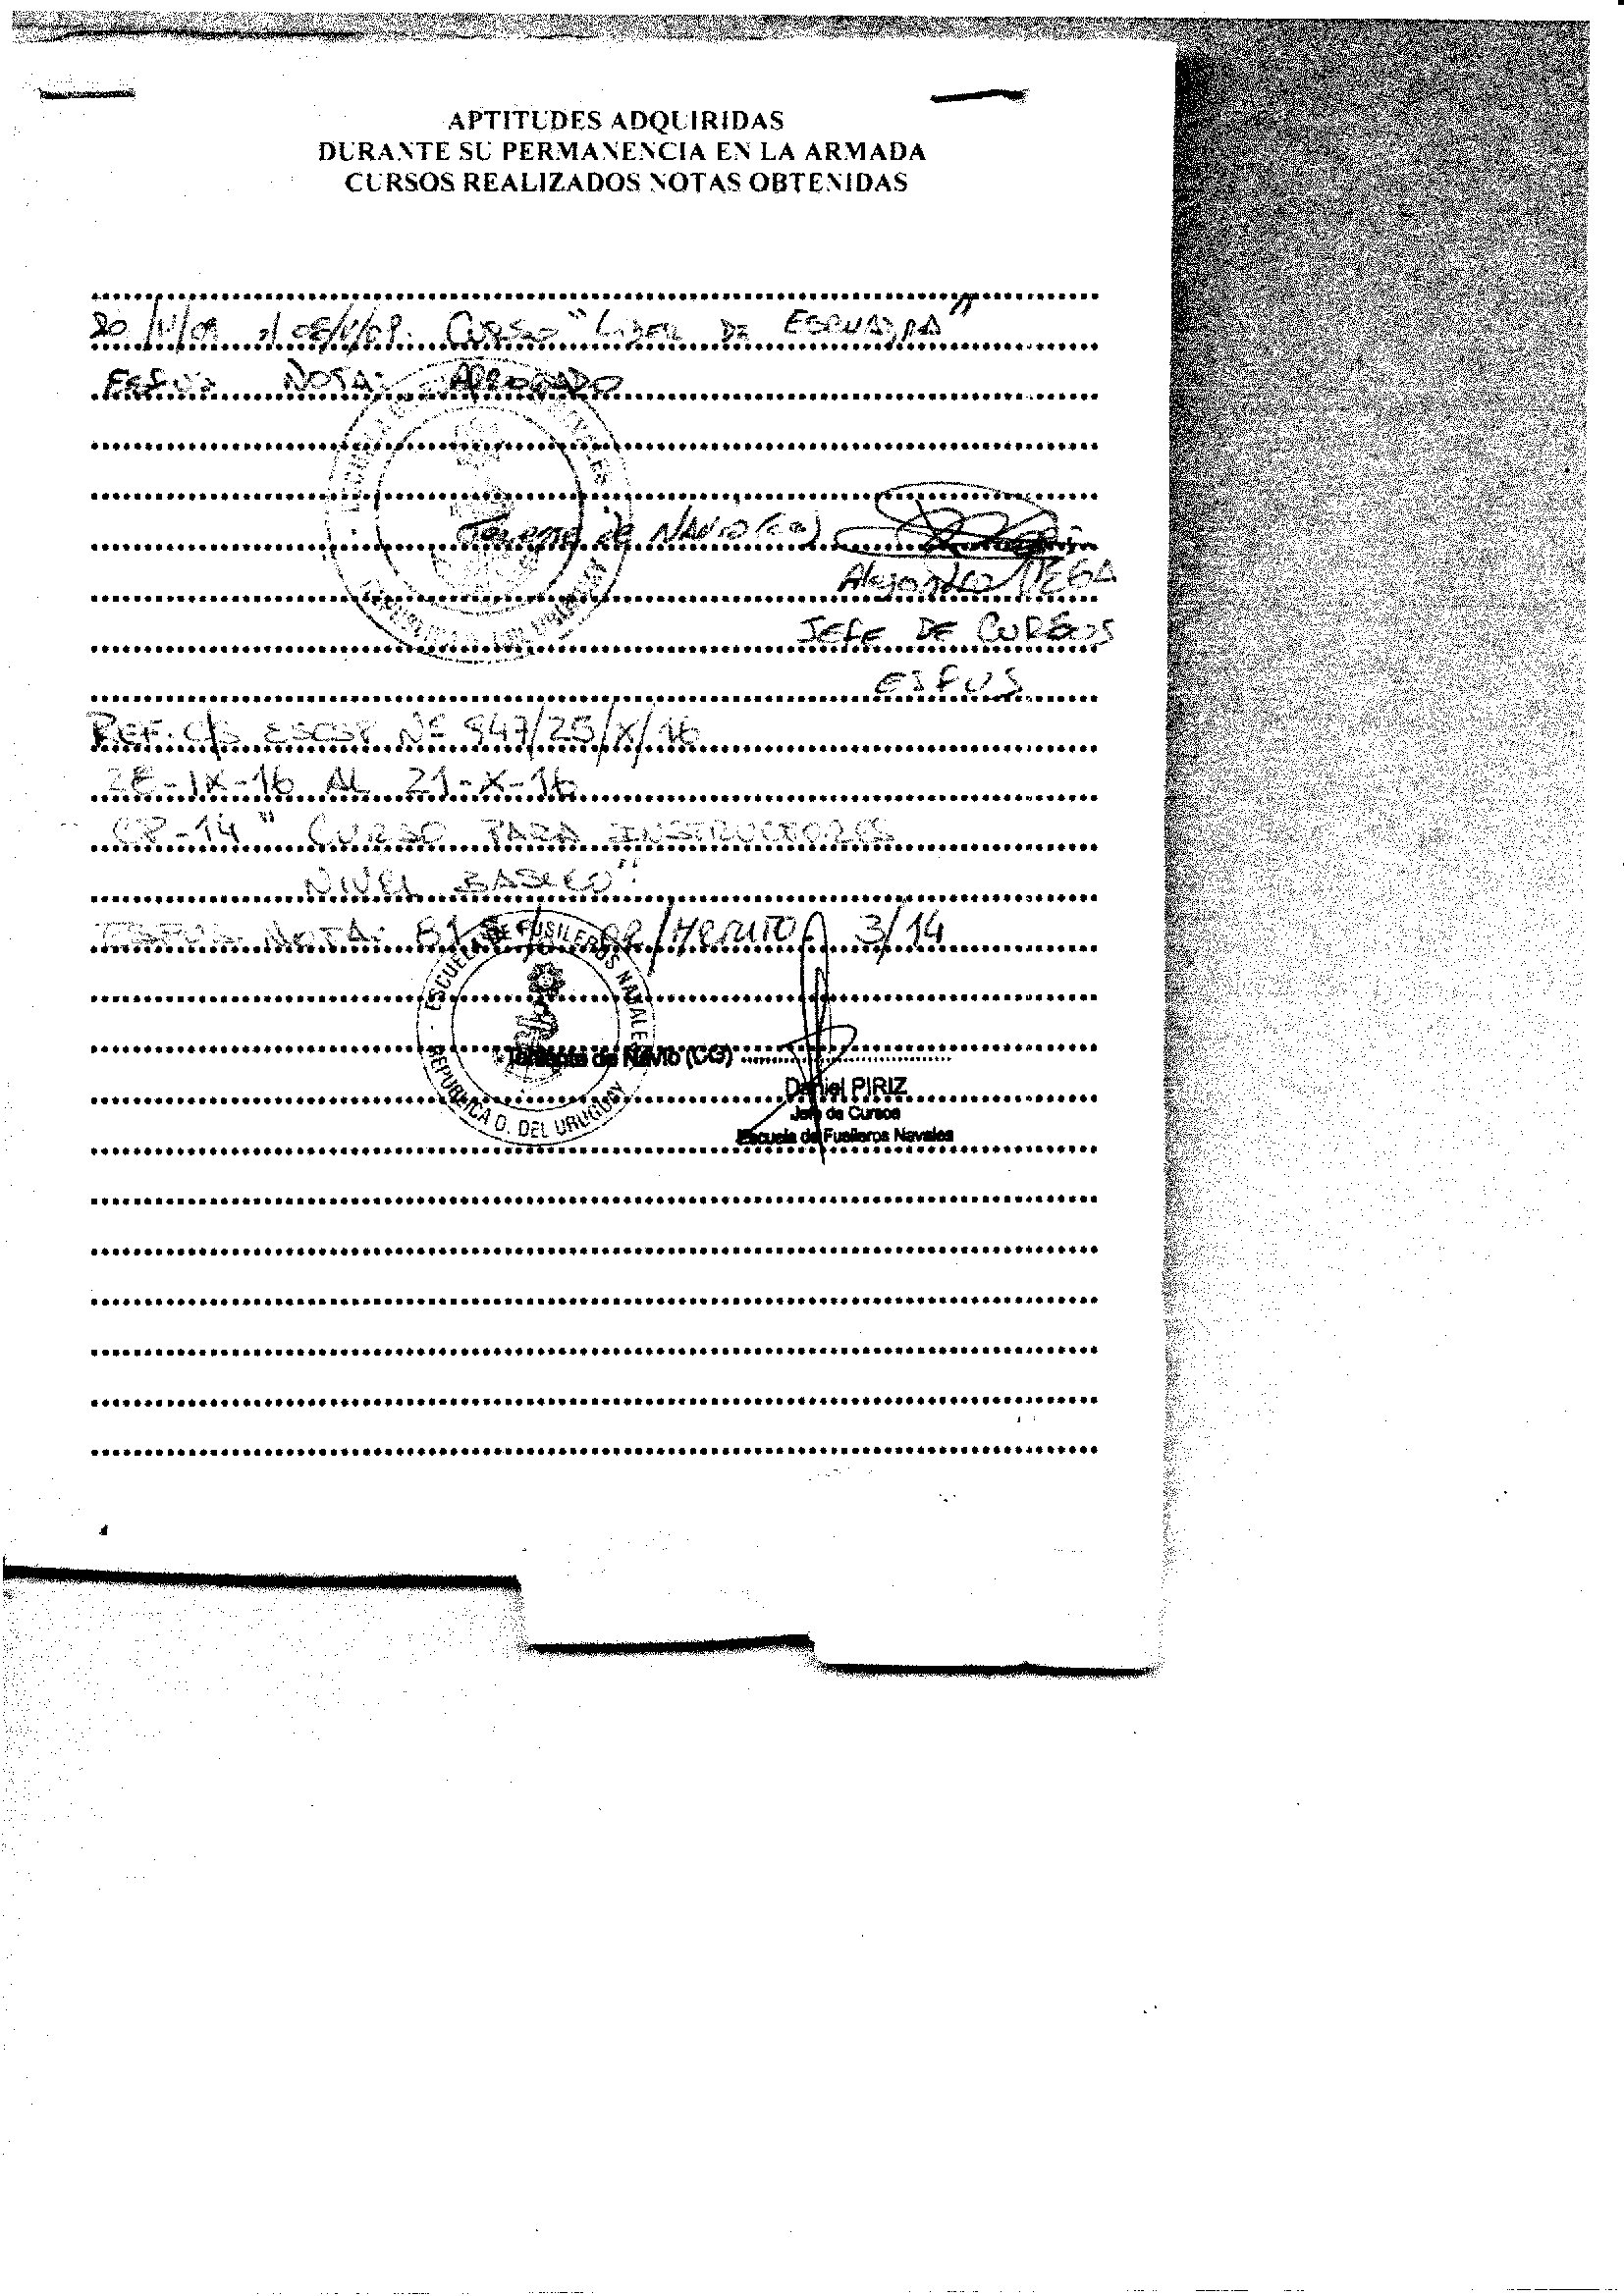 APTITUDES ADQUIRIDAS
DURANTE SU PERMANENCIA EN LA ARMADA
CURSOS REALIZADOS NOTAS OBTENIDAS
CURSO "LIDER DE ESCUADRA"
ESFUS NOTA: APROBADO
Teniente de NAVIO (CG)
Alejandro VEGA
JEFE DE CURSOS
ESFUS
REF. C/S ESCSP Nº 947/25/X/16
28-IX-16 AL 21-X-16
CP-14 "CURSO PARA INSTRUCTORES
NIVEL BASICO".
ESFUS NOTA: 81 /MERITO 3/14
ESCUELA DE FUSILEROS NAVALES
REPUBLICA O. DEL URUGUAY
Teniente de Navio (CG)
Daniel PIRIZ
Jefe de Cursos
Escuela de Fusileros Navales